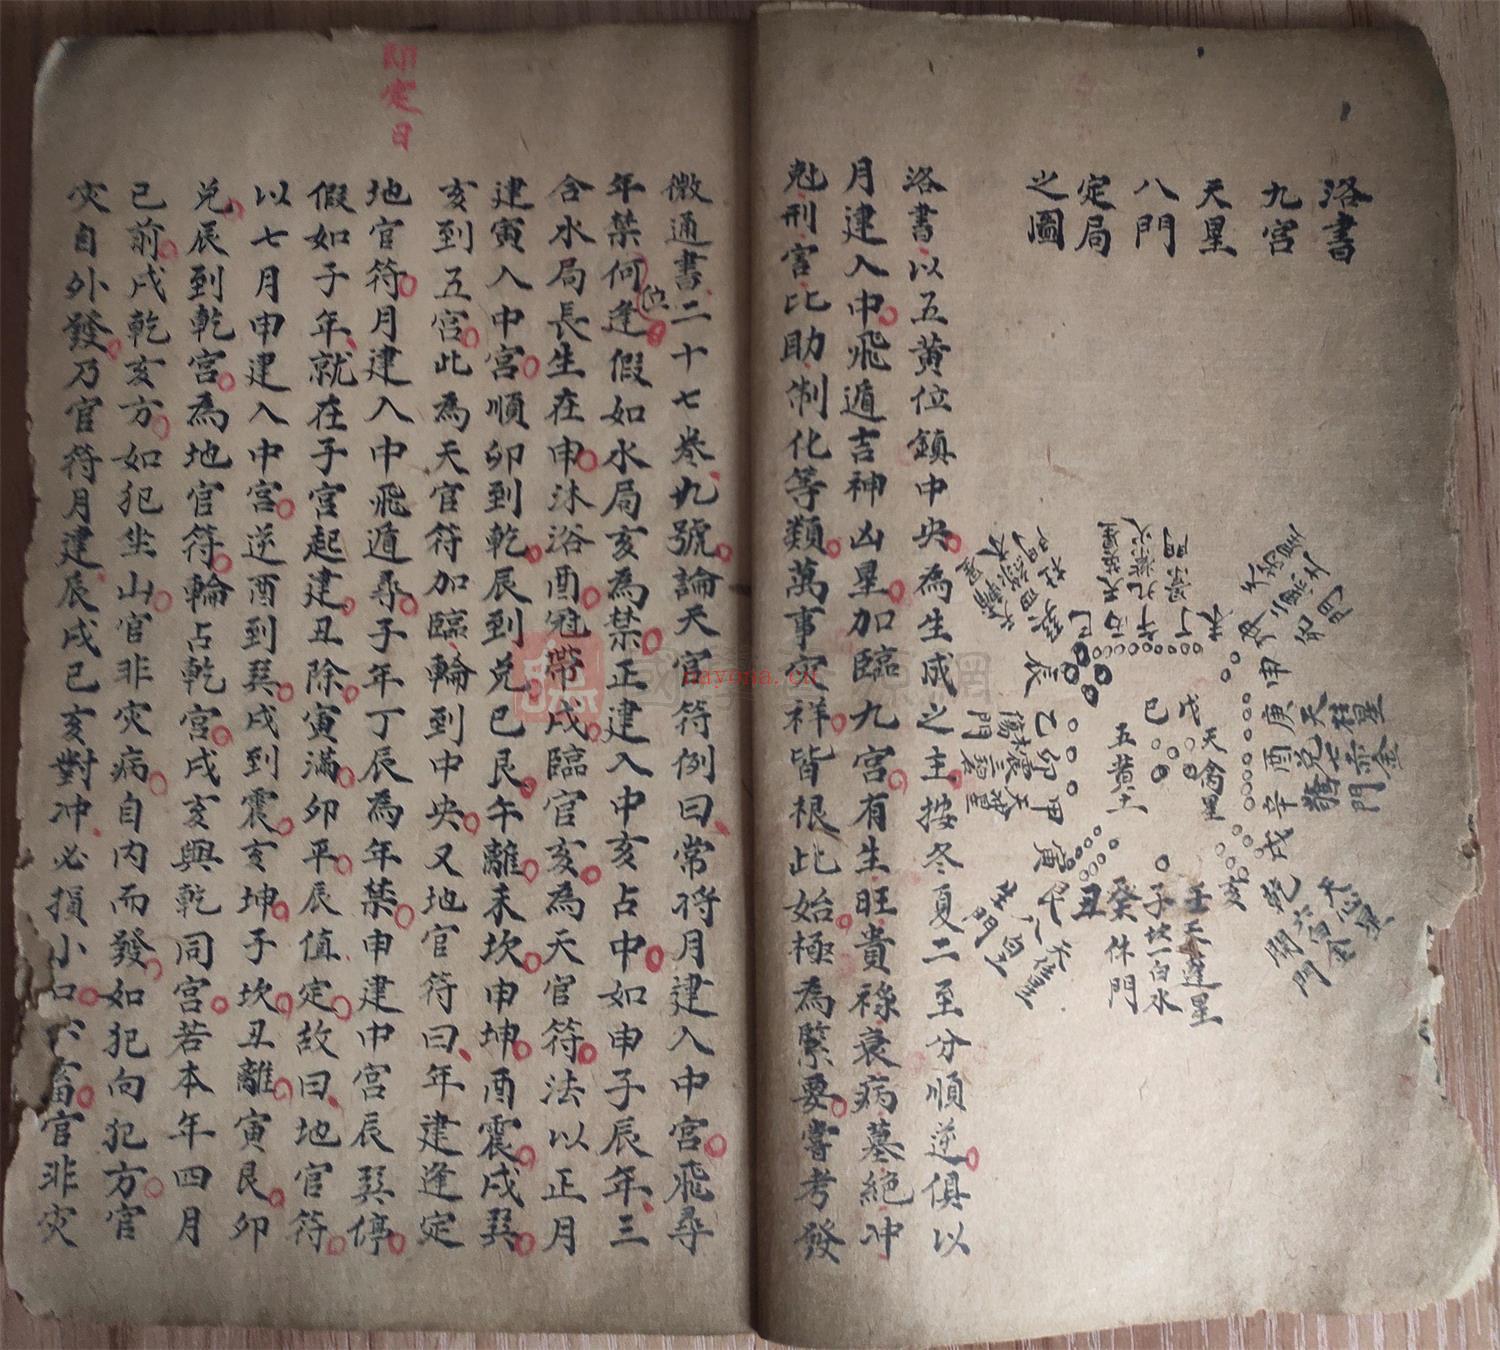 洛書
九宮
天星
八門
定局
之圖
未丁午丙巳
九紫火
景門
天英星
坤申
庚酉辛
兌七赤金
天柱星
驚門
戌乾亥
六白金
天心星
開門
壬子癸
天蓬星
坎一白水
休門
丑艮寅
八白
生門
甲卯乙
震三碧木
傷門
辰
杜門
戊己
天禽星
五黃土
洛書以五黃位鎮中央為生成之主按冬夏二至分順逆俱以
月建入中飛遁吉神凶星加臨九宮有生旺貴祿衰病墓絕冲
尅刑害比助制化等類萬事灾祥皆根此始極為緊要嘗考發
微通書二十七卷九號論天官符例曰常將月建入中宮飛尋
年禁何位逢假如水局亥為禁正建入中亥占中如申子辰年三
合水局長生在申沐浴酉冠帶戌臨官亥為天官符法以正月
建寅入中宮順卯到乾辰到兌巳艮午離未坎申坤酉震戌巽
亥到五宮此為天官符加臨輪到中央又地官符曰年建逢定
地官符月建入中飛遁尋子年丁辰為年禁申建中宮辰巽停
假如子年就在子宮起建丑除寅滿卯平辰值定故曰地官符
以七月申建入中宮逆酉到巽戌到震亥坤子坎丑離寅艮卯
兌辰到乾宮為地官符輪占乾宮戌亥與乾同宮若本年四月
已前戌乾亥方如犯坐山官非灾病自內而發如犯向犯方官
灾自外發乃官符月建辰戌巳亥對冲必損小口六畜官非灾
即定日